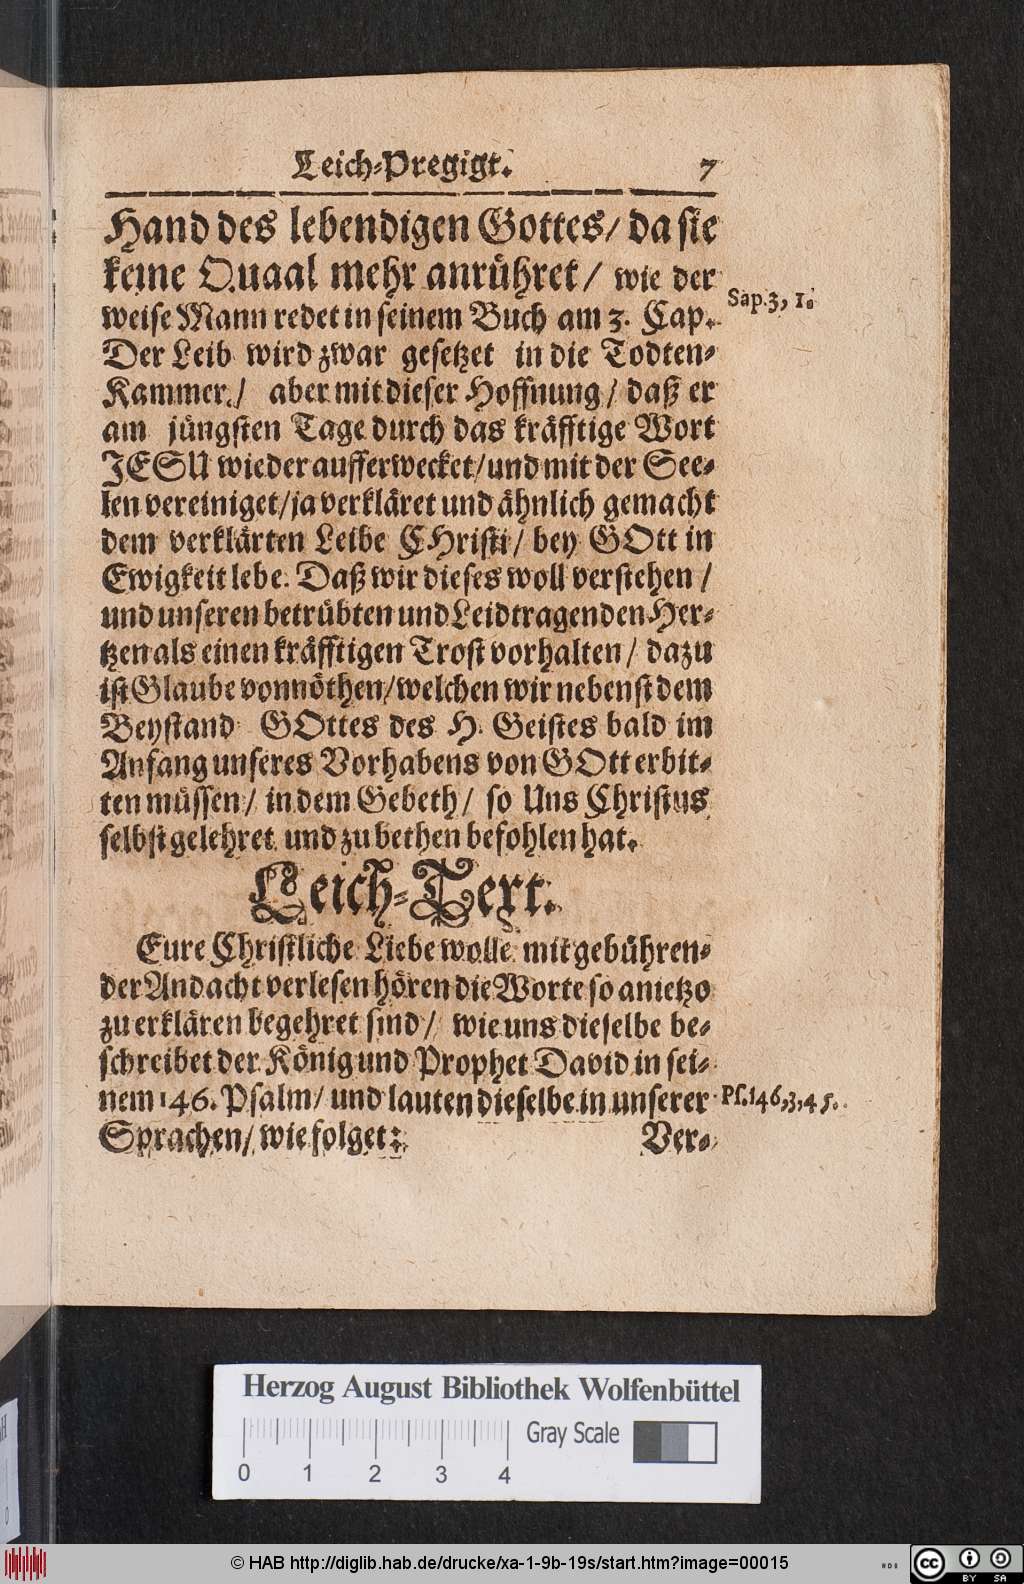 Leich-Pregigt. 7
Hand des lebendigen Gottes/ da sie
keine Quaal mehr anrühret/ wie der
Sap. 3, 1.
weise Mann redet in seinem Buch am 3. Cap.
Der Leib wird zwar gesetzet in die Todten-
Kammer/ aber mit dieser Hoffnung/ daß er
am jüngsten Tage durch das kräfftige Wort
JESU wieder aufferwecket/ und mit der See-
len vereiniget/ ja verkläret und ähnlich gemacht
dem verklärten Leibe CHristi/ bey GOtt in
Ewigkeit lebe. Daß wir dieses woll verstehen/
und unseren betrübten und Leidtragenden Her-
tzen als einen kräfftigen Trost vorhalten/ dazu
ist Glaube vonnöthen/ welchen wir nebenst dem
Beystand GOttes des H. Geistes bald im
Anfang unseres Vorhabens von GOtt erbit-
ten müssen/ in dem Gebeth/ so Uns Christus
selbst gelehret und zu bethen befohlen hat.
Leich-Text.
Eure Christliche Liebe wolle mit gebühren-
der Andacht verlesen hören die Worte so anietzo
zu erklären begehret sind/ wie uns dieselbe be-
schreibet der König und Prophet David in sei-
nem 146. Psalm/ und lauten dieselbe in unserer
Ps. 146, 3, 4 5.
Sprachen/ wie folget: Ver-
Herzog August Bibliothek Wolfenbüttel
Gray Scale
0 1 2 3 4
© HAB http://diglib.hab.de/drucke/xa-1-9b-19s/start.htm?image=00015
cc BY SA